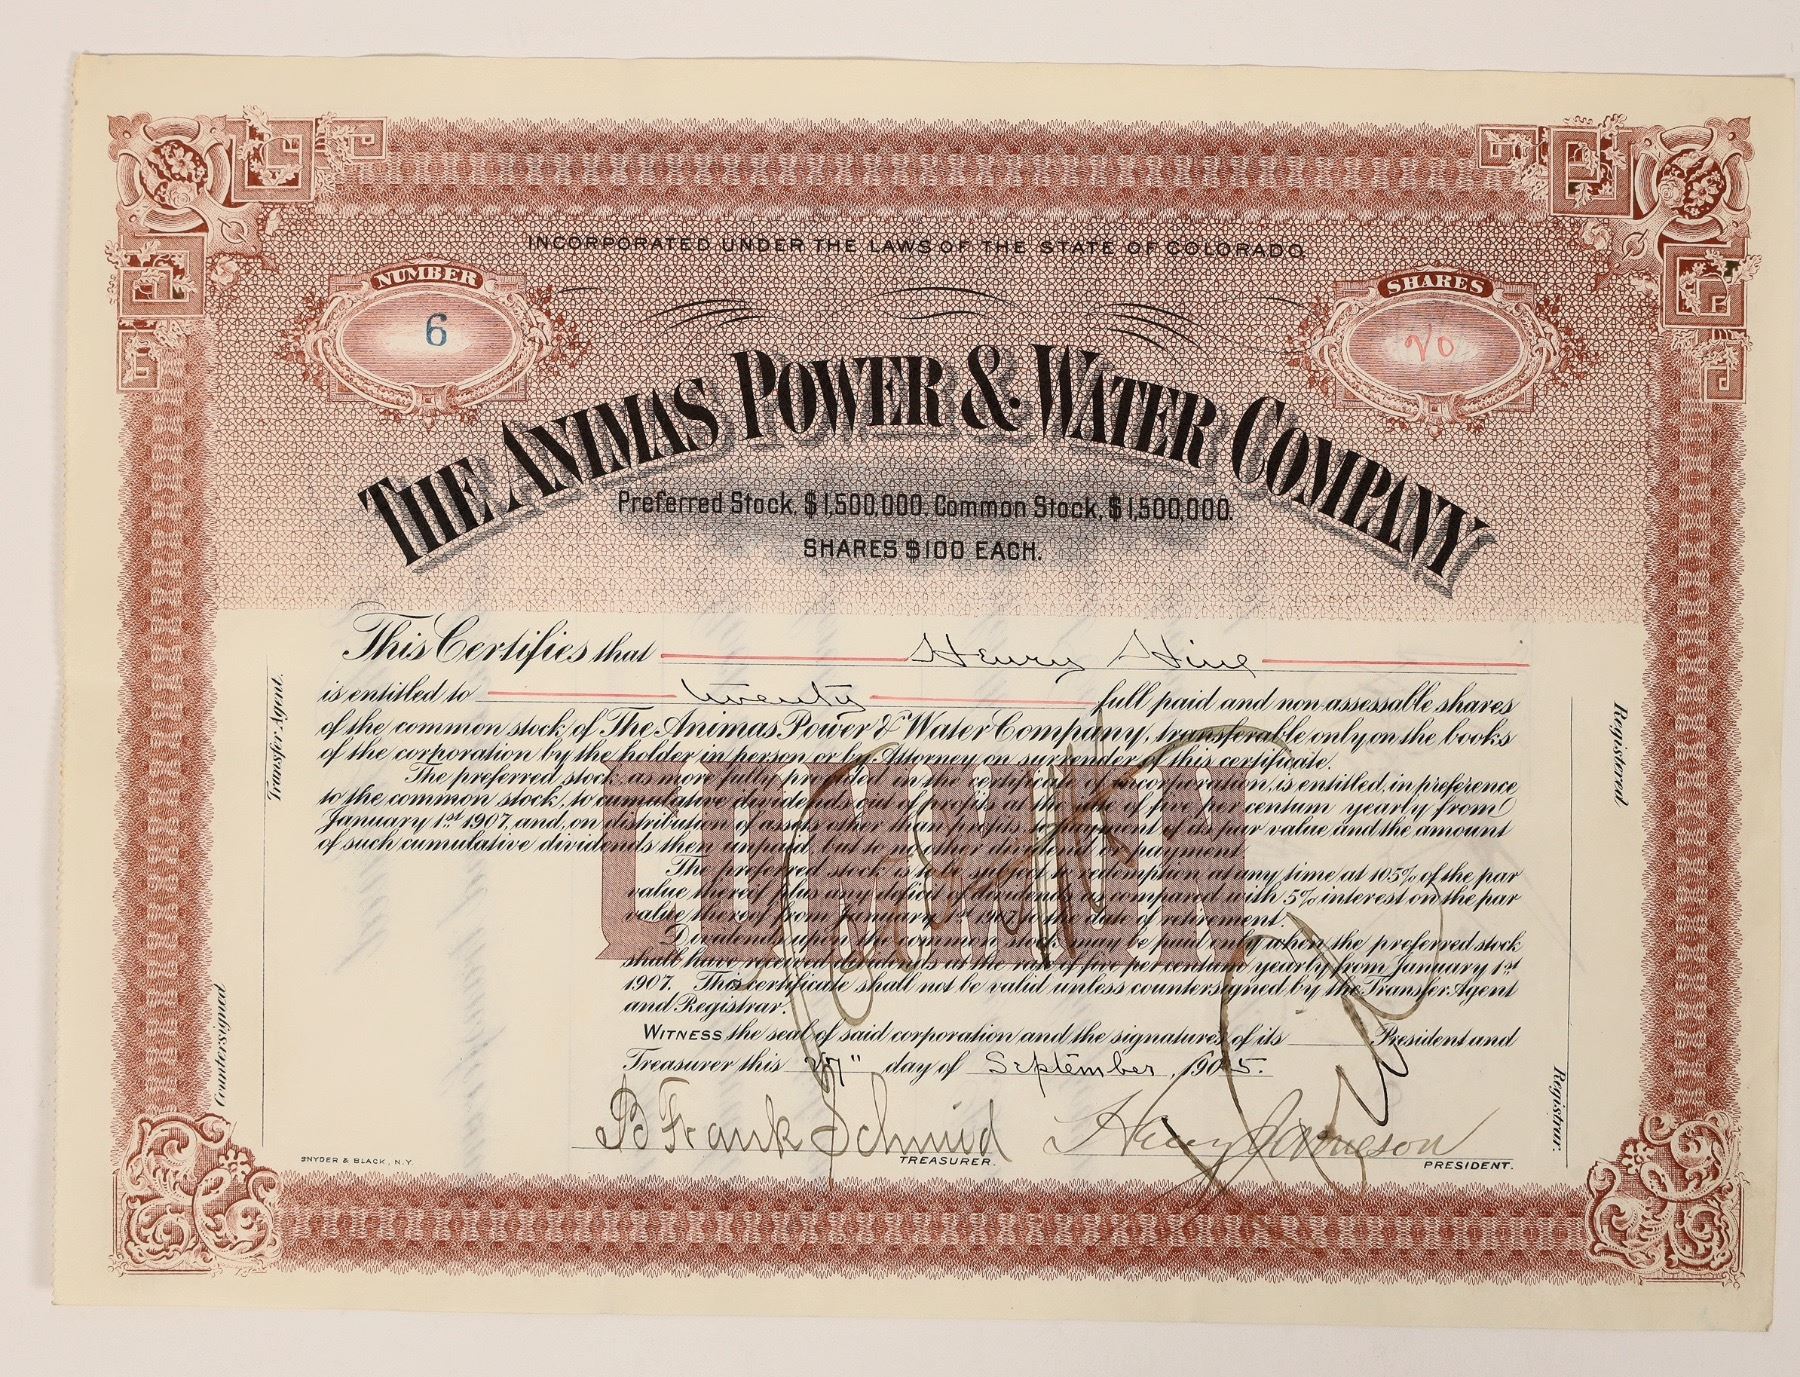 INCORPORATED UNDER THE LAWS OF THE STATE OF COLORADO
NUMBER
6
SHARES
20
THE ANIMAS POWER & WATER COMPANY
Preferred Stock, $1,500,000, Common Stock, $1,500,000.
SHARES $100 EACH.
This Certifies that Henry Hine
is entitled to twenty full paid and non-assessable shares
of the common stock, of The Animas Power & Water Company, transferable only on the books
of the corporation by the holder in person or by Attorney on surrender of this certificate.
The preferred stock, as more fully provided in the certificate of incorporation, is entitled, in preference
to the common stock, to cumulative dividends out of profits at the rate of five per centum yearly from
January 1st 1907, and, on distribution of assets other than profits, to payment of its par value and the amount
of such cumulative dividends then unpaid, but to no other dividend or payment.
The preferred stock is to be subject to redemption at any time at 105% of the par
value thereof plus any deficit of dividends as compared with 5% interest on the par
value thereof from January 1st 1907 to the date of retirement.
Dividends upon the common stock may be paid only when the preferred stock
shall have received dividends at the rate of five per centum yearly from January 1st
1907. This certificate shall not be valid unless countersigned by the Transfer Agent
and Registrar.
WITNESS the seal of said corporation and the signatures of its President and
Treasurer this 27" day of September, 1905.
COMMON
B Frank Schmid
TREASURER.
Henry Jameson
PRESIDENT.
SNYDER & BLACK, N.Y.
Countersigned
Transfer Agent.
Registered
Registrar.